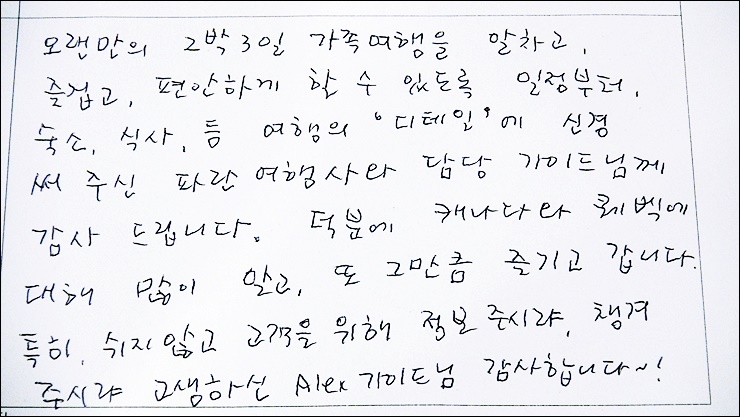 오랜만의 2박3일 가족여행을 알차고,
즐겁고, 편안하게 할 수 있도록 일정부터,
숙소, 식사, 등 여행의 '디테일'에 신경
써 주신 파란여행사와 담당 가이드님께
감사 드립니다. 덕분에 캐나다와 퀘벡에
대해 많이 알고, 또 그만큼 즐기고 갑니다.
특히, 쉬지않고 고객을 위해 정보 주시랴, 챙겨
주시랴 고생하신 Alex가이드님 감사합니다~!